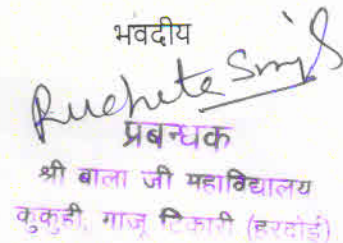 भवदीय
Ruchita Singh
प्रबन्धक
श्री बाला जी महाविद्यालय
कुकुही, गाजू टिकारी (हरदोई)